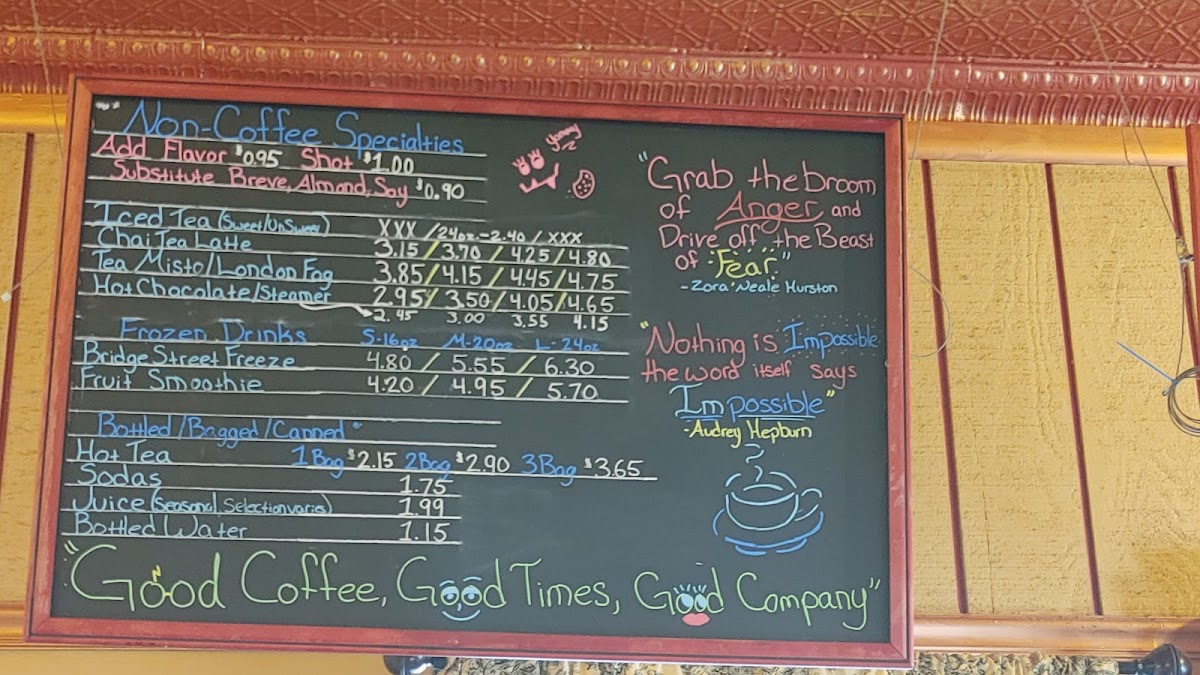 Non-Coffee Specialties
Add Flavor $0.95 Shot $1.00
Substitute Breve, Almond, Soy $0.90
Iced Tea (Sweet/UnSweet) XXX / 24oz.-2.40 / XXX
Chai Tea Latte 3.15 / 3.70 / 4.25 / 4.80
Tea Misto/London Fog 3.85 / 4.15 / 4.45 / 4.75
Hot Chocolate/Steamer 2.95 / 3.50 / 4.05 / 4.65
2.45 3.00 3.55 4.15
Frozen Drinks S-16oz M-20oz L-24oz
Bridge Street Freeze 4.80 / 5.55 / 6.30
Fruit Smoothie 4.20 / 4.95 / 5.70
Bottled/Bagged/Canned
Hot Tea 1 Bag $2.15 2 Bag $2.90 3 Bag $3.65
Sodas 1.75
Juice (Seasonal, Selection varies) 1.99
Bottled Water 1.15
yummy
"Grab the broom
of Anger and
Drive off the Beast
of Fear"
-Zora Neale Hurston
"Nothing is Impossible
the word itself says
Im possible"
-Audrey Hepburn
"Good Coffee, Good Times, Good Company"